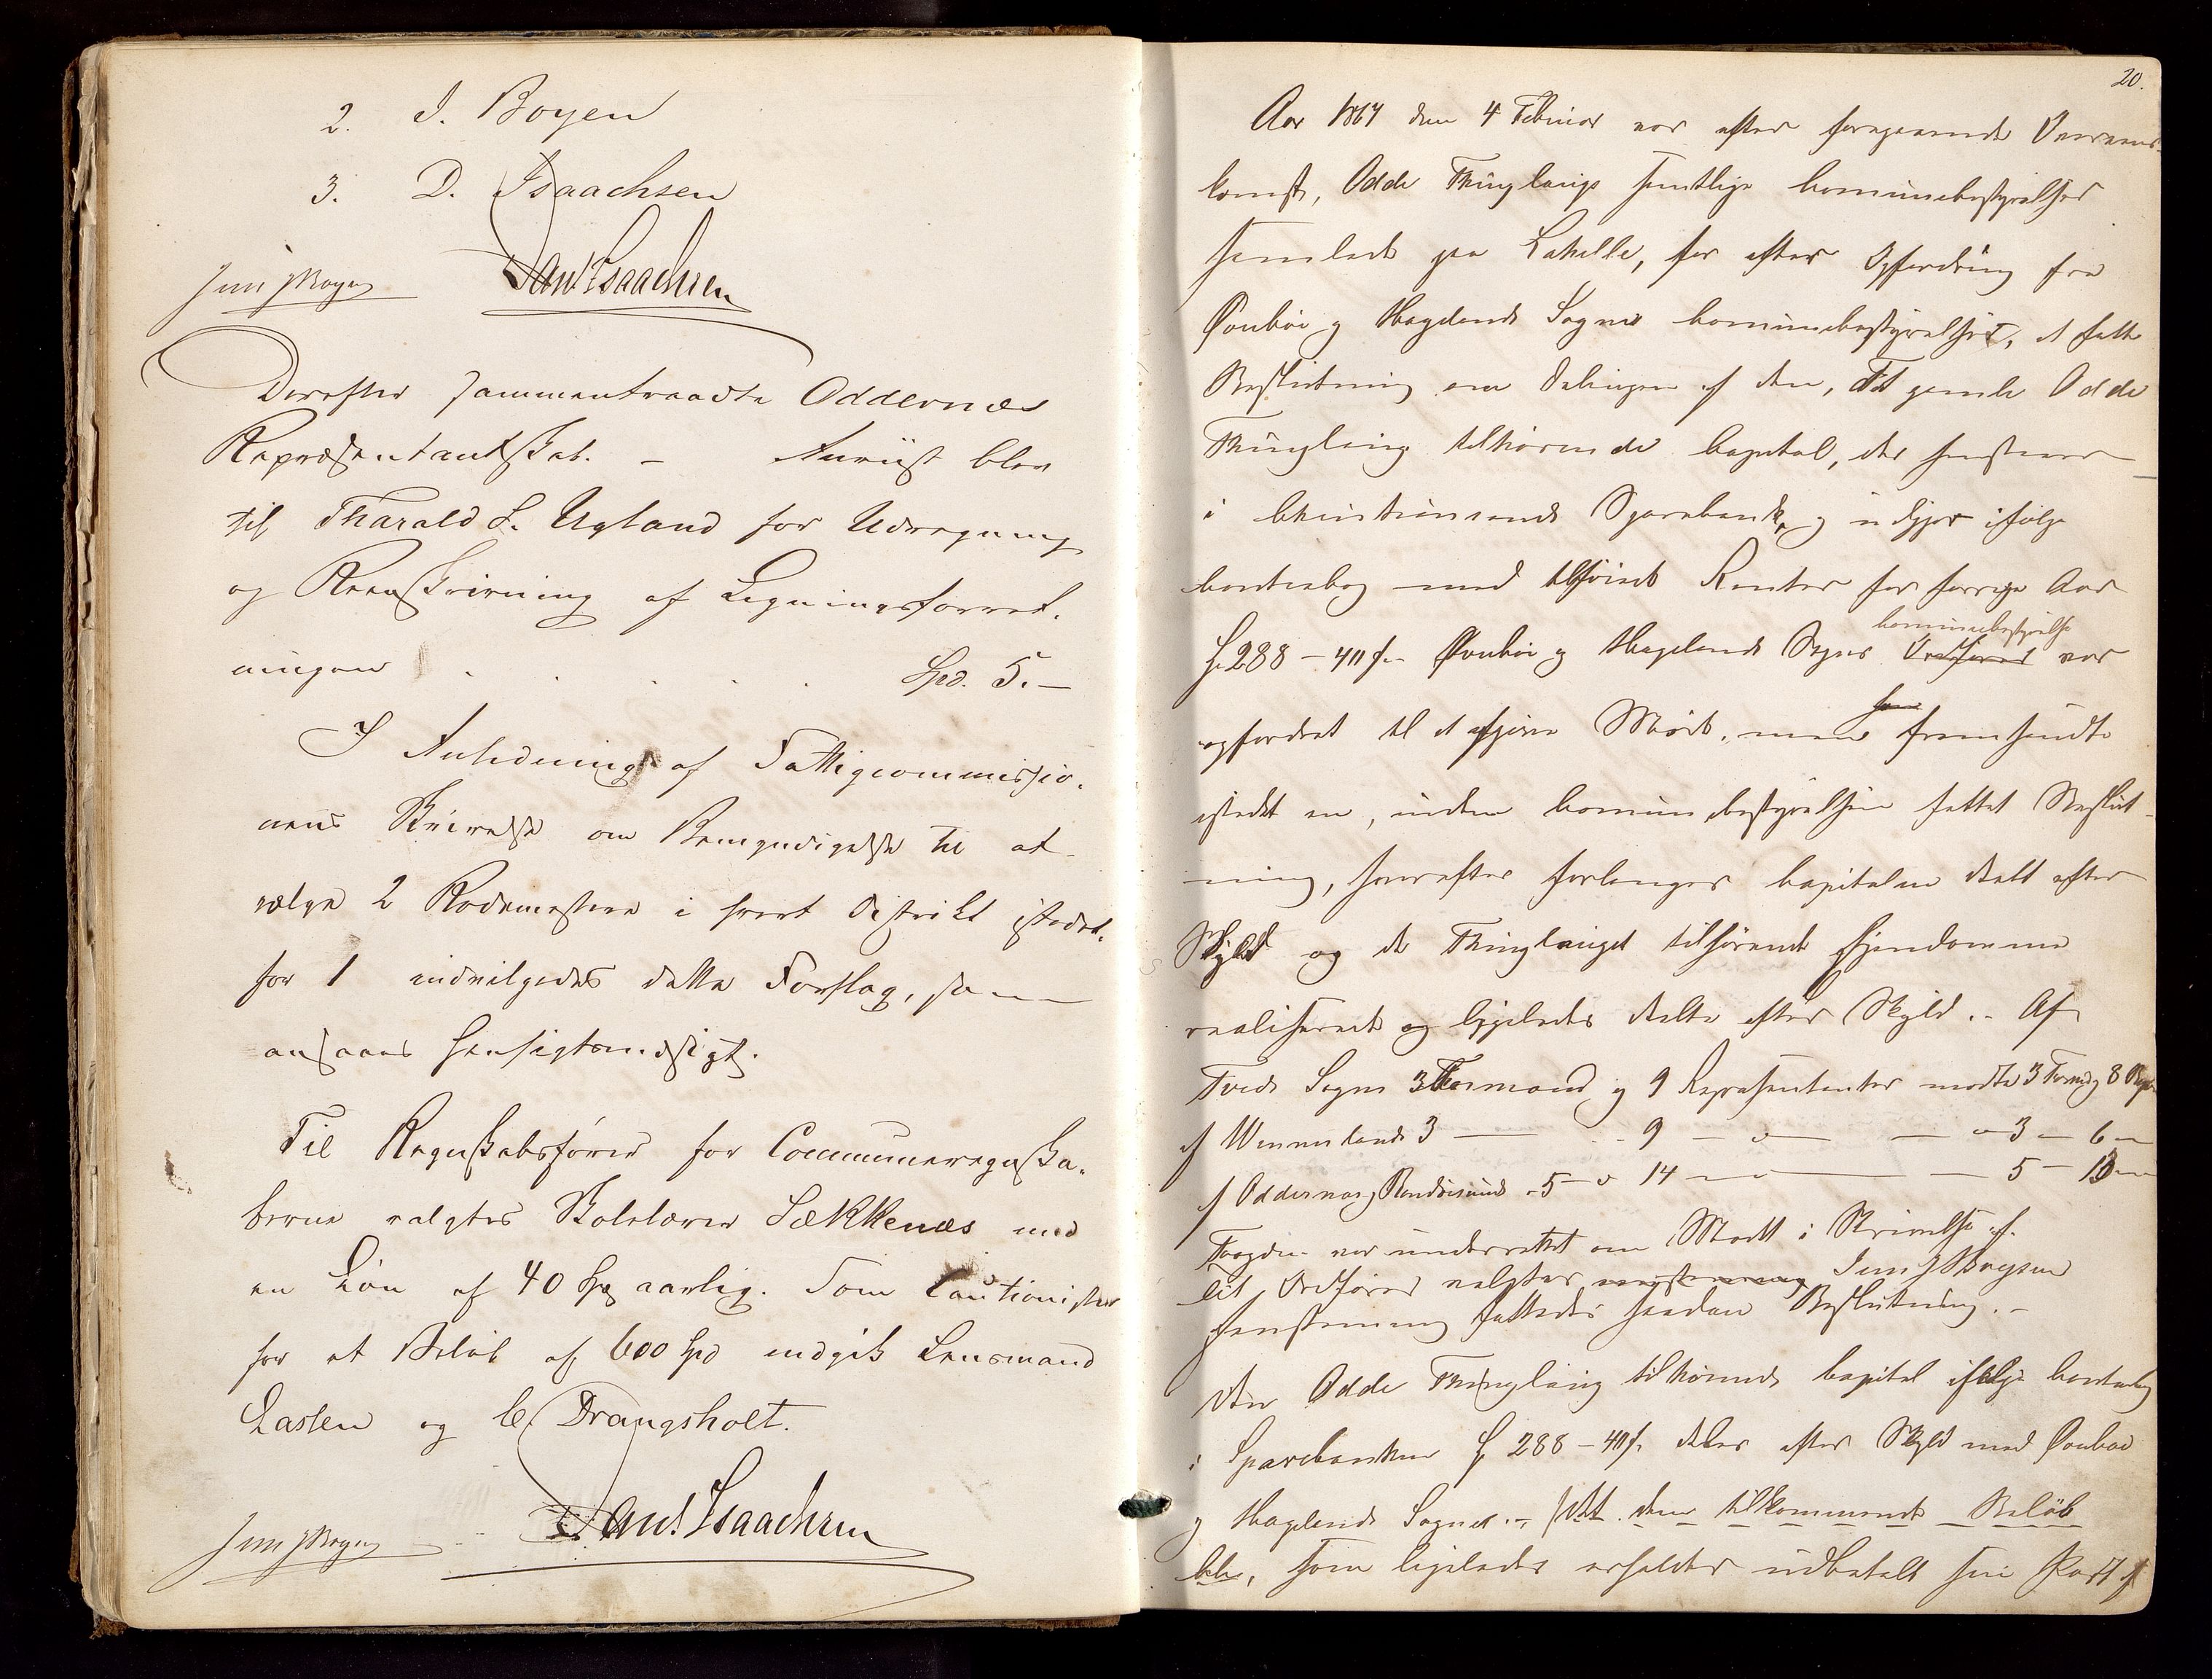 2. J. Boyen
3. D. Isaachsen
Jens JBoyen Dan. Isaachsen
Derefter sammentraadte Oddernæs
Repræsentantskab. – Anviist blev
til Tharald L. Ugland for Udregning
og Reenskrivning af Ligningsforret-
ningen . . . . . Spd. 5.–
I Anledning af Fattigcommissio-
nens Skrivelse om Bemyndigelse til at
vælge 2 Rodemestere i hvert District istedet-
for 1 indvilgedes dette Forslag, som
ansaaes hensigtsmæssigt.
Til Regnskabsfører for Communeregnska-
berne valgtes Skolelærer Sækkenæs med
en Løn af 40 Spd aarlig. Som Cautionister
for et Beløb af 600 Spd indgik Lensmand
Lasten og C. Drangsholt.
Jens JBoyen Dan. Isaachsen
20.
Aar 1867 den 4 Februar var efter foregaaende Overeens-
komst, Odde Thinglaugs samtlige Kommunebestyrelser
samlede paa Lahelle, for efter Opfordring fra
Øvrebøe og Hægelands Sogns Kommunebestyrelser, at fatte
Beslutning om Delingen af den, det gamle Odde
Thinglaug tilhørende Kapital, der henstaaer
i Christianssands Sparebank, og udgjør ifølge
Contrabog med tilføiede Renter for forrige Aar
Sp 288 – 40 s. – Øvrebøe og Hægelands Sogns Kommunebestyrelse Ordfører var
opfordret til at afgive Møde, men han fremsendte
istedet en, inden Kommunebestyrelsen fattet Beslut-
ning, hvorefter forlanges Kapitalen deelt efter
Skyld og de Thinglauget tilhørende Eiendomme
realiserede og ligeledes deelte efter Skyld. – Af
Tveds Sogn 3 Formænd og 9 Repræsentanter mødte 3 Formd og 8 Repr
af Wennesland 3 – 9 – – 3 – 6 –
af Oddernæs og Randøesund 5 – 14 – – 5 – 13 –
Fogden var underrettet om Mødet i Skrivelse af
Til Ordfører valgtes Jens JBoysen
Enstemmig fattedes saadan Beslutning. –
Den Odde Thinglaug tilhørende Kapital ifølge Contrabog
i Sparebanken Sp 288 – 40 s. deles efter Skyld med Øvrebøe
og Hægelands Sogne. – det dem tilkommende Beløb
som ligeledes erholder udbetalt sin Part af